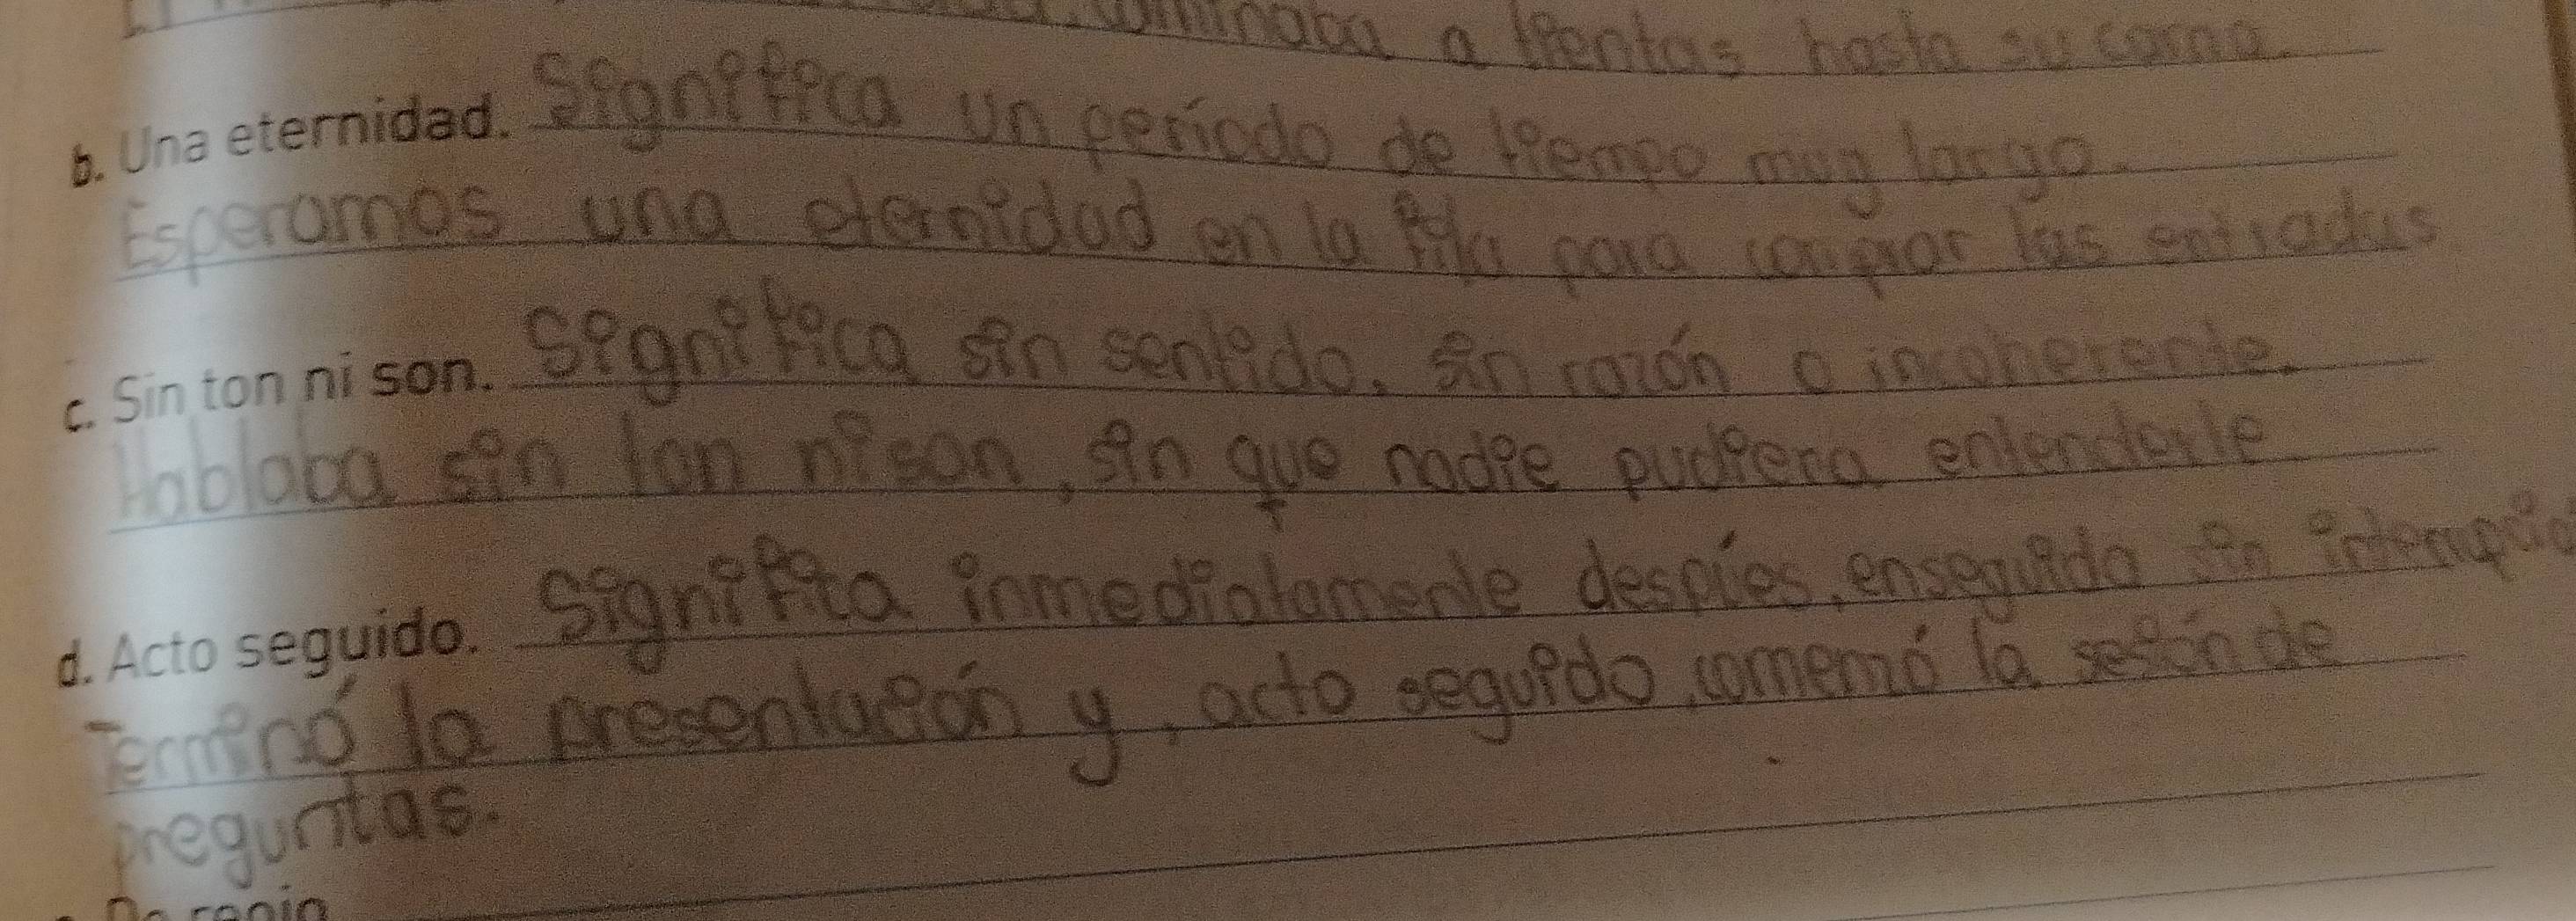 caminaba a tientas hasta su cama.
b. Una eternidad. Significa un período de tiempo muy largo.
Esperamos una eternidad en la fila para comprar las entradas
c. Sin ton ni son. Significa sin sentido, sin razón o incoherente.
Hablaba sin ton ni son, sin que nadie pudiera entenderle
d. Acto seguido. Significa inmediatamente despúes, enseguida sin
Terminó la presentación y, acto seguido, comemó la sesón de
preguntas.